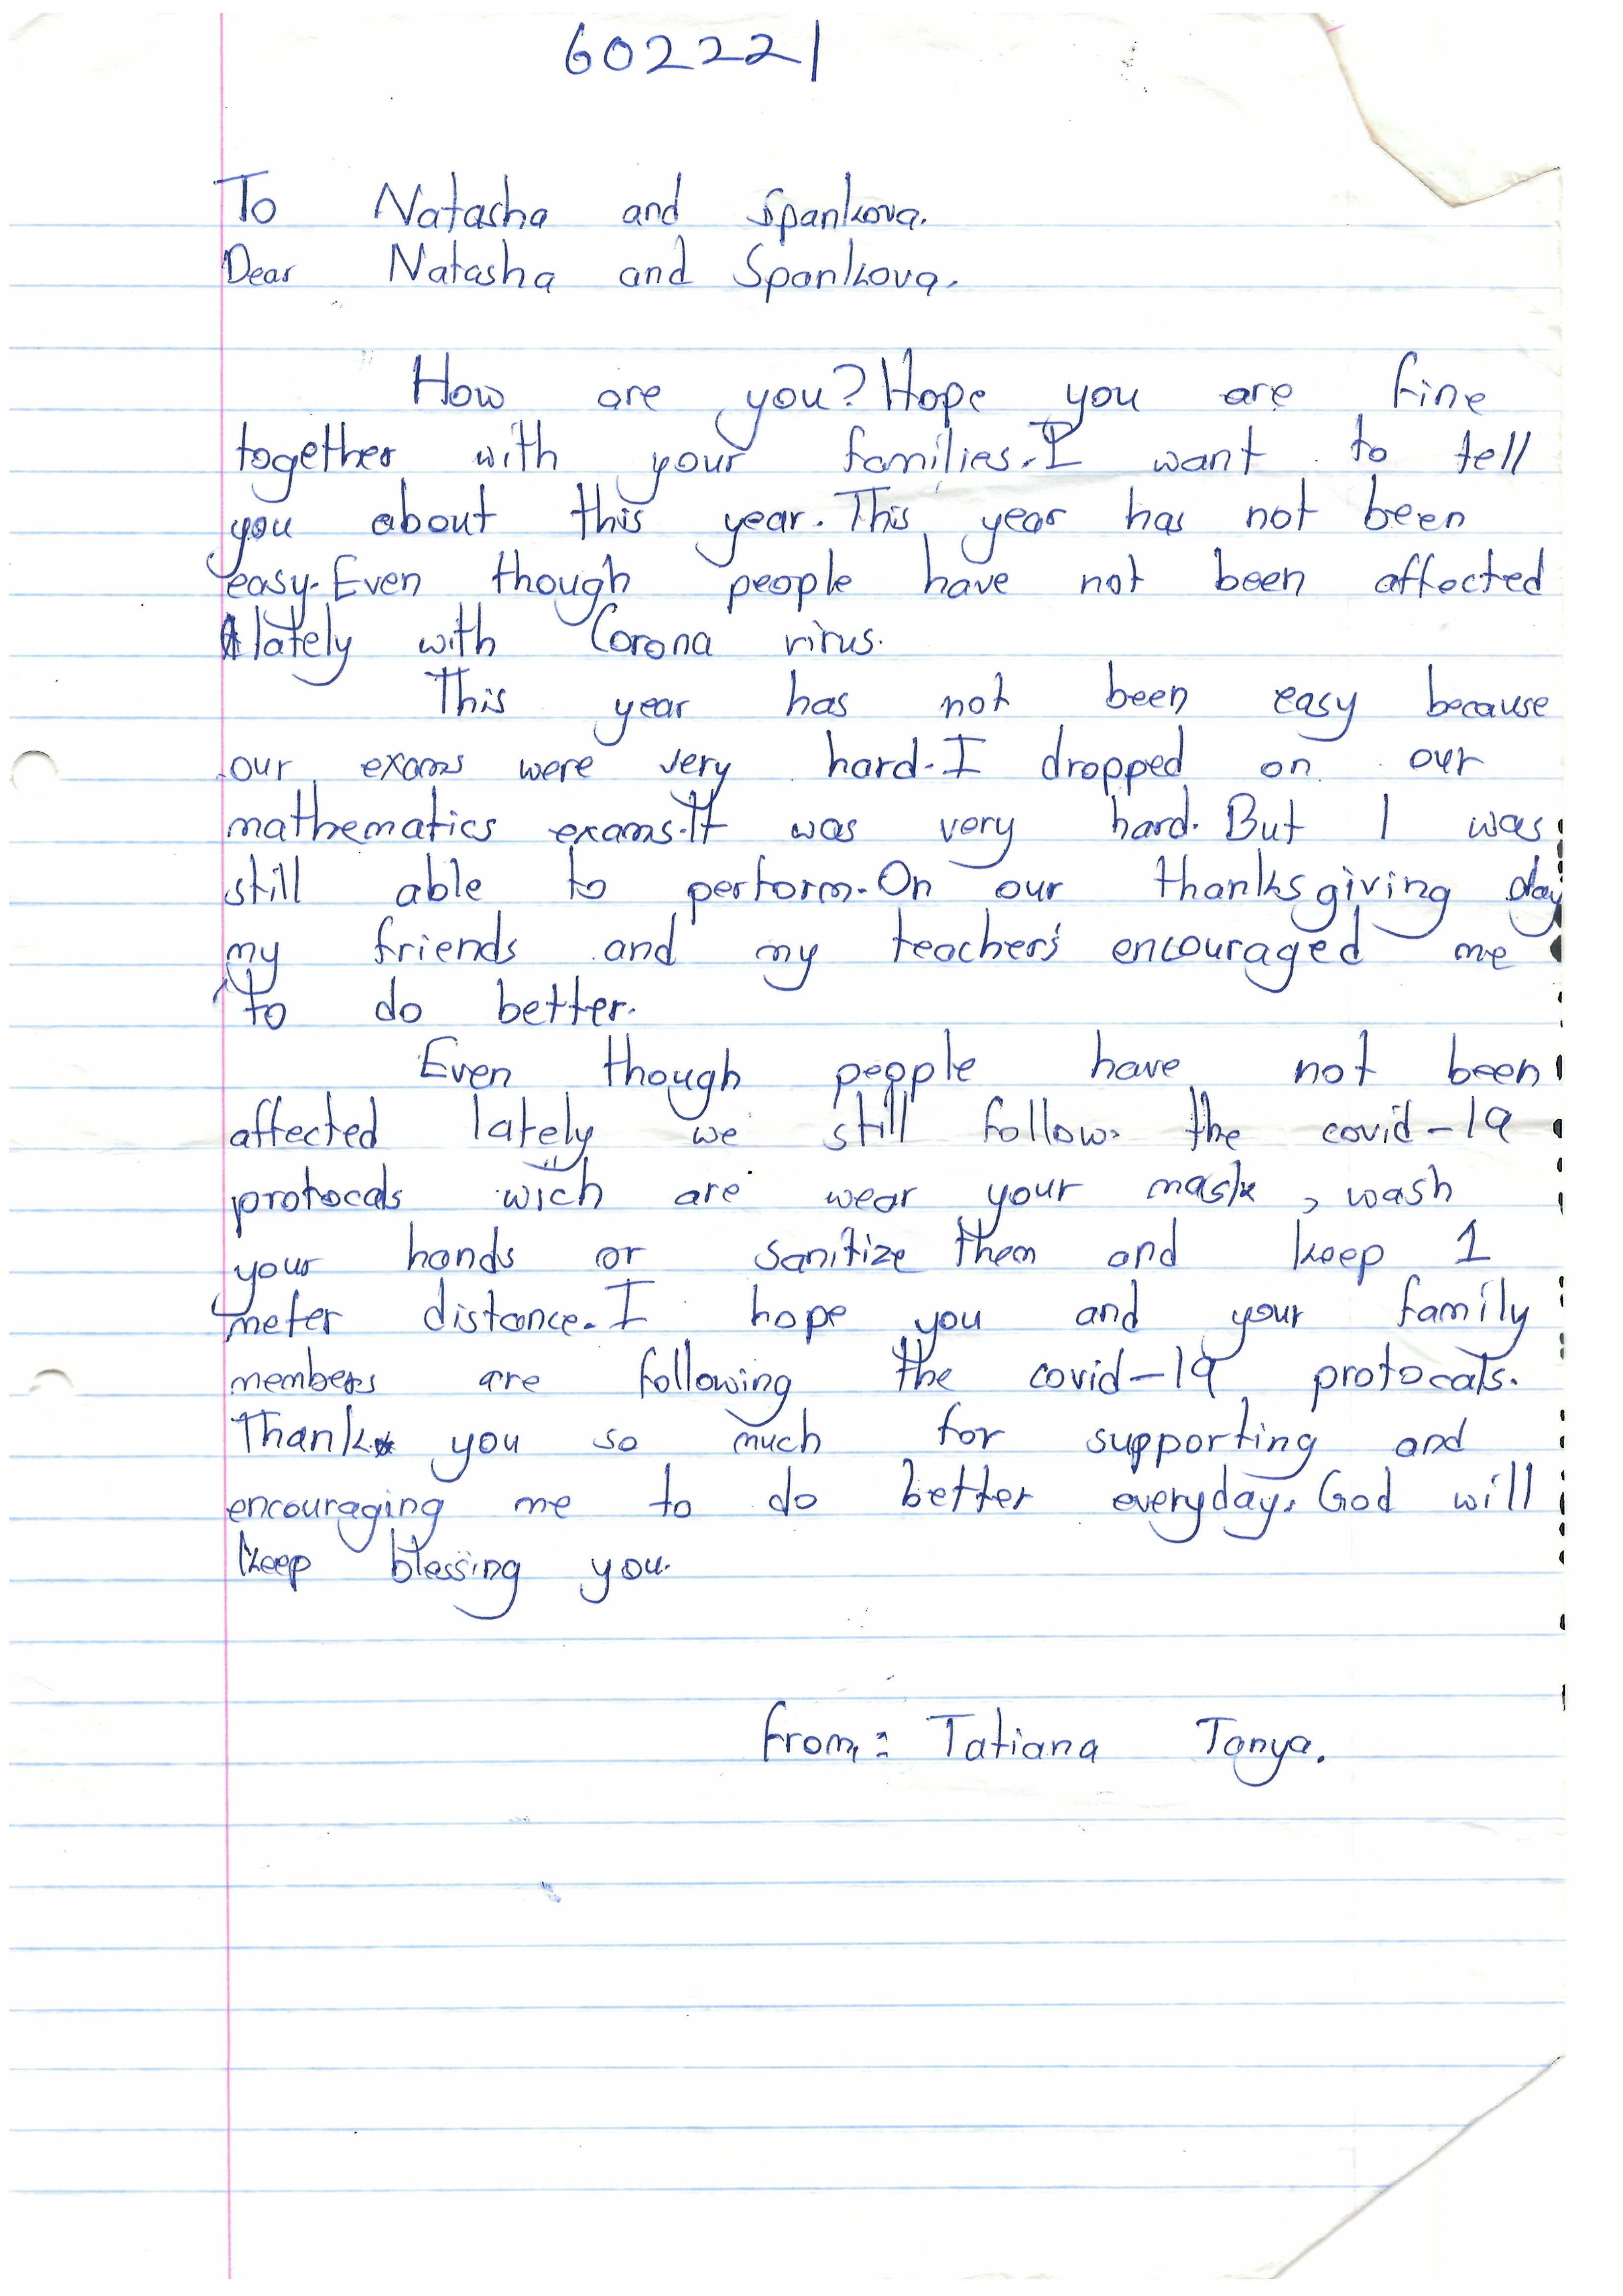 602221
To Natasha and Spankova.
Dear Natasha and Spankova.
How are you? Hope you are fine
together with your families. I want to tell
you about this year. This year has not been
easy. Even though people have not been affected
lately with Corona virus.
This year has not been easy because
our exams were very hard. I dropped on our
mathematics exams. It was very hard. But I was
still able to perform. On our thanksgiving day
my friends and my teacher's encouraged me
to do better.
Even though people have not been
affected lately we still follow the covid-19
protocals wich are wear your mask, wash
your hands or sanitize them and keep 1
meter distance. I hope you and your family
members are following the covid-19 protocals.
Thank you so much for supporting and
encouraging me to do better everyday. God will
keep blessing you.
From: Tatiana Tanya.